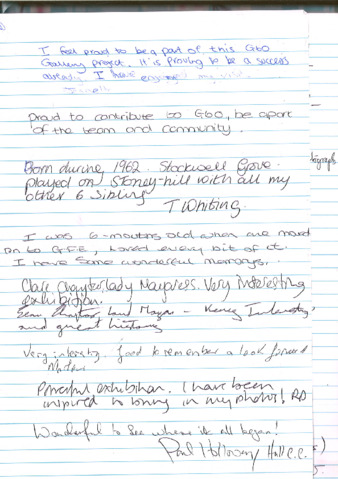 I feel proud to be a part of this G60
Gallery project. It is proving to be a success
already. I have enjoyed my visit.
Proud to contribute to G60, be apart
of the team and community.
Born during 1962. Stockwell Grove.
played on Stoney-hill with all my
other 6 sibling
T Whiting.
I was 6-months old when we moved
on to G.F.E, loved every bit of it.
I have some wonderful memorys.
Clare Chapter Lady Mayoress. Very interesting
exhibition.
Sean Lord Mayor - Very Interesting
and great history
Very interesting. Good to remember a look forward
Powerful exhibition. I have been
inspired to bring in my photos! RD
Wonderful to see where it all began!
Paul Holloway Hull C.C.